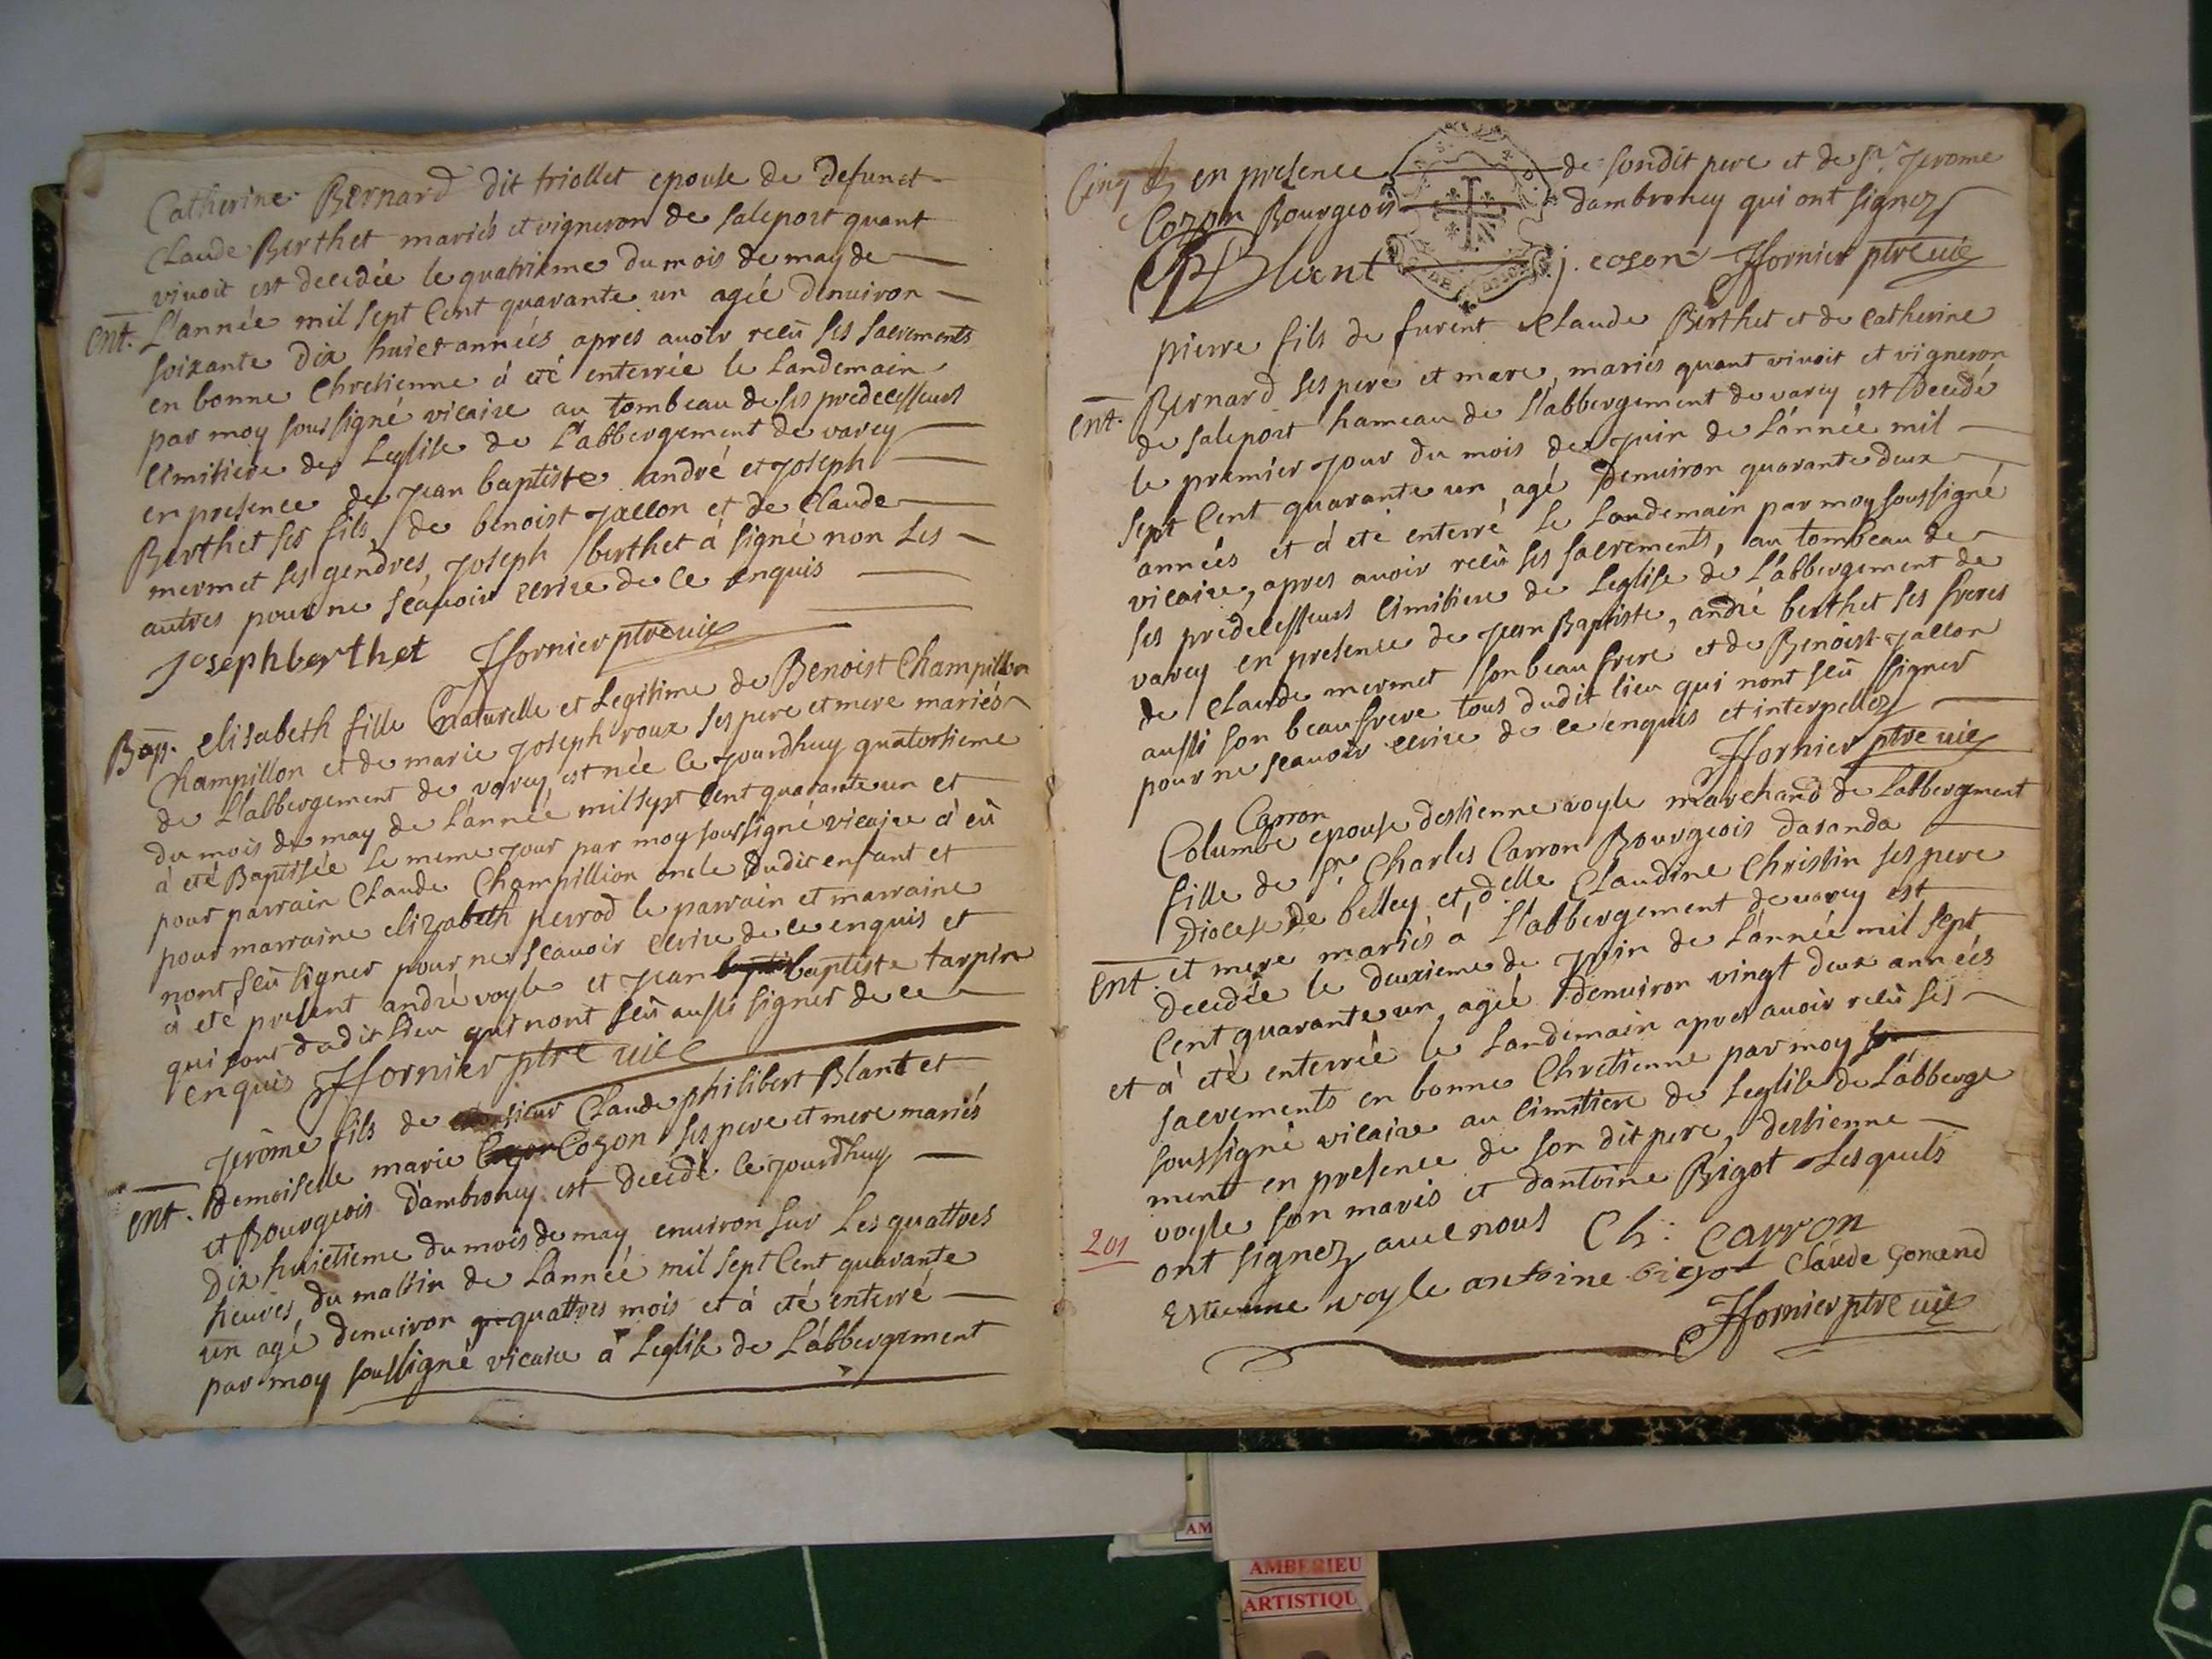 Catherine Bernard dit triollet epouse de defunct
Claude Berthet mariés et vigneron de saleport quant
vivoit est decedée le quatrieme du mois de may de
ent. L'année mil sept Cent quarante un agée denuiron
soixante dix huict années apres auoir receu ses sacrements
en bonne Chretienne á eté enterrée le Landemain
par moy soussigné vicaire au tombeau de ses predecesseurs
Cimitiere de Leglise de L'abbergement de varey
en presence de Jean baptiste andré et Joseph
Berthet ses fils, de benoist Jallon et de Claude
mermet ses gendres, Joseph berthet á signé non Les
autres pour ne scauoir ecrire de ce enquis
Joseph berthet Jfornier ptre vic
Bap. elisabeth fille naturelle et Legitime de Benoist Champillon
Champillon et de marie Joseph roux ses pere et mere mariés
de L'abbergement de varey, est née Ce Jourdhuy quatortieme
du mois de may de L'année mil sept Cent quarante un et
á eté Baptisée Le meme Jour par moy soussigné vicaire á eu
pour parrain Claude Champillion oncle dudit enfant et
pour marraine elizabeth perrod le parrain et marraine
nont sçeu signer pour ne scauoir ecrire de ce enquis et
á eté present andré voyle et Jean baptiste tarpin
qui sont dudit lieu qui nont sçeu aussi signer de ce
enquis Jfornier ptre vic
Jerôme fils de sieur Claude philibert Blant et
ent. Demoiselle marie Cozon ses pere et mere mariés
et Bourgeois D'ambronay est decedé Ce Jourdhuy
Dix huictieme du mois de may enuiron sur Les quattres
heures du mattin de L'année mil sept Cent quarante
un agé denuiron quattres mois et á eté enterré
par moy soussigné vicaire á Leglise de L'abbergement
Cinq s. en presence de sondit pere et de sr. Jerome
Cozon Bourgeois dambronay qui ont signez
Blant j. coson Jfornier ptre vic
pierre fils de furent Claude Berthet et de Catherine
ent. Bernard ses pere et mere, mariés quant vivoit et vigneron
de saleport hameau de L'abbergement de varey est decedé
le premier Jour du mois de Juin de L'année mil
sept Cent quarante un, agé Denuiron quarante deux
années et á eté enterré Le Landemain par moy soussigné
vicaire, apres auoir receu ses sacrements, au tombeau de
ses predecesseurs Cimitiere de Leglise de L'abbergement de
varey en presence de Jean Baptiste, andré berthet ses freres
de Claude mermet son beau frere et de Benoist Jallon
aussi son beau frere tous dudit lieu qui nont sçeu signer
pour ne scauoir ecrire de ce enquis et interpellés
Jfornier ptre vic
Carron
Columbe epouse destienne voyle marchand de Labbergement
fille de sr. Charles Carron Bourgeois daranda
Diocese de belley et, d.elle Claudine Christin ses pere
ent. et mere mariés á L'abbergement de varey est
decedée le deuxieme de Juin de L'année mil sept
Cent quarante un, agée denuiron vingt deux années
et á eté enterrée le Landemain apres auoir receu ses
sacrements en bonne Chretienne par moy
soussigné vicaire au Cimitiere de Leglise de L'abberge
ment en presence de son dit pere, destienne
voyle son maris et dantoine Bigot Lesquels
201
ont signez auec nous Ch: Carron
Estienne voyle antoine bigot Claude Gonand
Jfornier ptre vic
AMBERIEU
ARTISTIQU